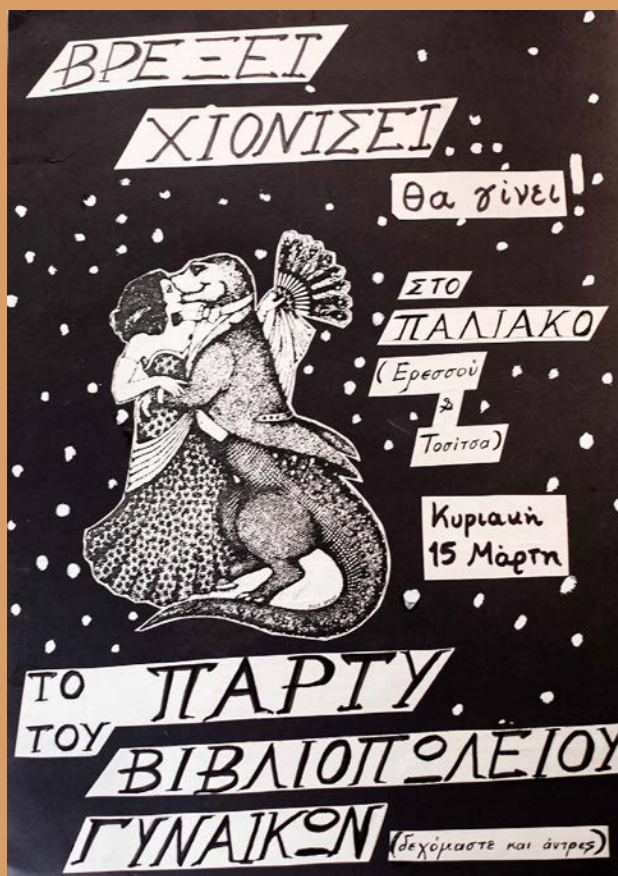 ΒΡΕΞΕΙ
ΧΙΟΝΙΣΕΙ
Θα γίνει!
ΣΤΟ
ΠΑΛΙΑΚΟ
(Ερεσσού
&
Τοσίτσα)
Κυριακή
15 Μάρτη
ΤΟ ΠΑΡΤΥ
ΤΟΥ ΒΙΒΛΙΟΠΩΛΕΙΟΥ
ΓΥΝΑΙΚΩΝ (δεχόμαστε και άντρες)